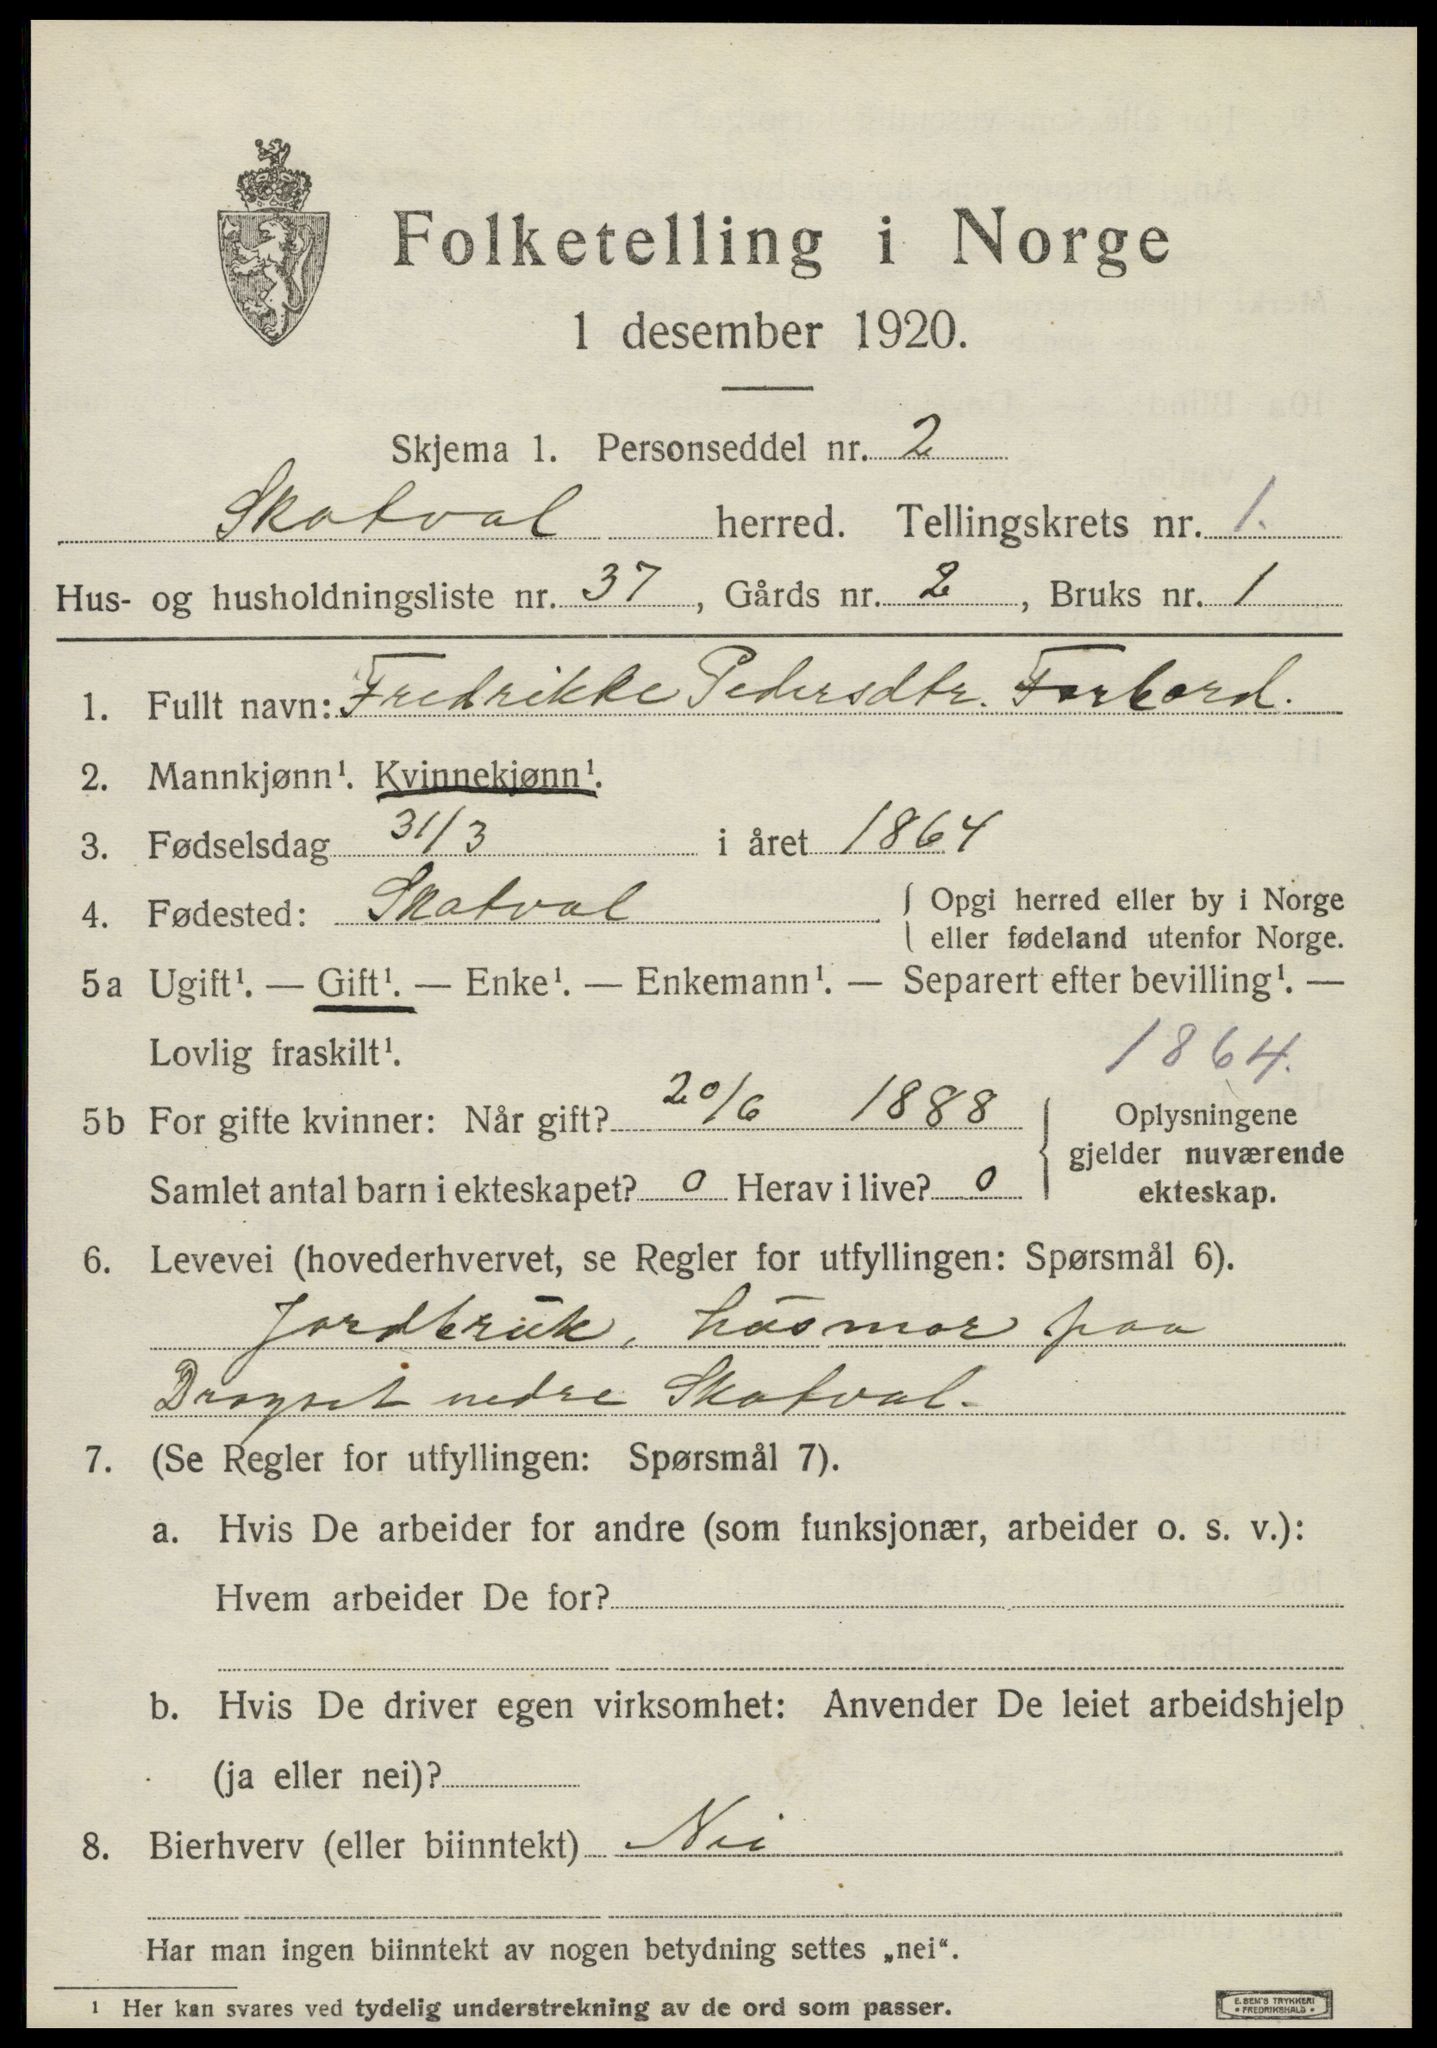 Folketelling i Norge
1 desember 1920.
Skjema 1. Personseddel nr. 2
Skatval herred. Tellingskrets nr. 1.
Hus- og husholdningsliste nr. 37, Gårds nr. 2, Bruks nr. 1
1. Fullt navn: Fredrikke Pedersdtr. Forbord.
2. Mannkjønn¹. Kvinnekjønn¹.
3. Fødselsdag 31/3 i året 1864
4. Fødested: Skatval
{ Opgi herred eller by i Norge
eller fødeland utenfor Norge.
5a Ugift¹. — Gift¹. — Enke¹. — Enkemann¹. — Separert efter bevilling¹. —
Lovlig fraskilt¹.
1864.
5b For gifte kvinner: Når gift? 20/6 1888
Samlet antal barn i ekteskapet? 0 Herav i live? 0
{ Oplysningene
gjelder nuværende
ekteskap.
6. Levevei (hovederhvervet, se Regler for utfyllingen: Spørsmål 6).
Jordbruk, husmor paa
Drogset nedre Skatval.
7. (Se Regler for utfyllingen: Spørsmål 7).
a. Hvis De arbeider for andre (som funksjonær, arbeider o. s. v.):
Hvem arbeider De for?
b. Hvis De driver egen virksomhet: Anvender De leiet arbeidshjelp
(ja eller nei)?
8. Bierhverv (eller biinntekt) Nei
Har man ingen biinntekt av nogen betydning settes „nei“.
¹ Her kan svares ved tydelig understrekning av de ord som passer.
E. SEM'S TRYKKERI
• FREDRIKSHALD •